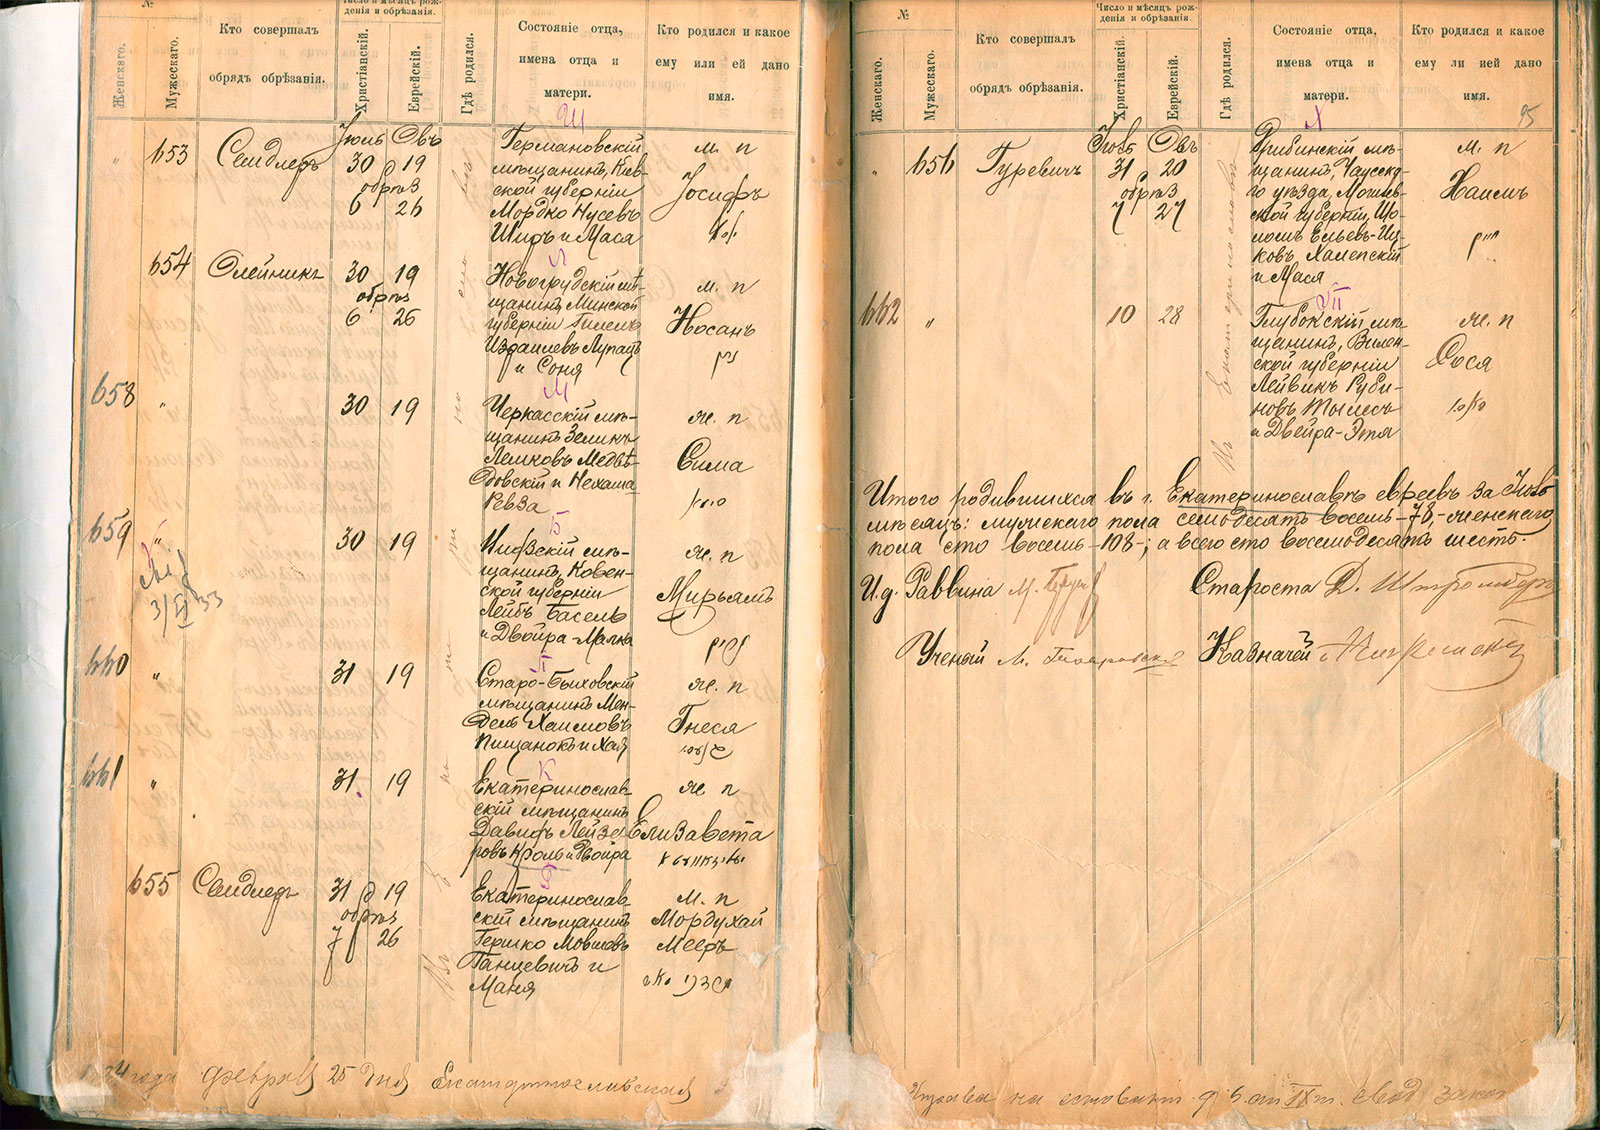 №
Женскаго.
Мужескаго.
Кто совершалъ
обрядъ обрѣзанія.
Число и мѣсяцъ рож-
денія и обрѣзанія.
Христіанскій.
Еврейскій.
Гдѣ родился.
Состояніе отца,
имена отца и
матери.
Кто родился и какое
ему или ей дано
имя.
Ш
653
Сендлеръ
Іюль Овъ
30 19
обрѣз
6 26
Германовскій
мѣщанинъ, Кіев-
ской губерніи
Мордко Нусевъ
Шифъ и Маса
м. п
Іосифъ
Л
654
Олейникъ
30 19
обрѣз
6 26
Новогрудскій мѣ-
щанинъ Минской
губерніи Гилель
Израилевъ Лупацъ
и Соня
м. п
Носанъ
נתן
М
658
"
30 19
Черкасскій мѣ-
щанинъ Зеликъ
Лейковъ Медвѣ-
довскій и Нехама
Ревза
же. п
Сима
סימא
Б
659
"
30 19
мѣ-
щанинъ, Ковен-
ской губерніи
Лейбъ Басель
и Двойра-Малка
же. п
Мирьямъ
מרים
3/VI 33
П
660
"
31 19
Старо-Быховскій
мѣщанинъ Мен-
дель Хаимовъ
Пищанокъ и Хая
же. п
Гнеся
К
661
"
31 19
Екатеринослав-
скій мѣщанинъ
Давидъ Лейзе-
ровъ Кроль и Двойра
же п
Елизавета
Г
655
Сендлеръ
31 19
обрѣз
7 26
Екатеринослав-
скій мѣщанинъ
Гершко Мовшовъ
Ганцевичъ и
Маня
м. п
Мордухай
Мееръ
года февраля 25 дня Екатеринославская
№
Женскаго.
Мужескаго.
Кто совершалъ
обрядъ обрѣзанія.
Число и мѣсяцъ рож-
денія и обрѣзанія.
Христіанскій.
Еврейскій.
Гдѣ родился.
Состояніе отца,
имена отца и
матери.
Кто родился и какое
ему ли ией дано
имя.
95
Х
"
656
Гуревичъ
Іюль Овъ
31 20
обрѣз
7 27
Рибинскій мѣ-
щанинъ, Чаусска-
го уѣзда, Могилев-
ской губерніи, Шо-
ломъ Ельевъ-Иц-
ковъ Халепскій
и Мася
м. п
Хаимъ
חיים
Въ Екатеринославѣ
662
"
10 28
Глубокскій мѣ-
щанинъ, Вилен-
ской губерніи
Лейвикъ Руби-
новъ
и Двейра-Этя
же. п
Сося
Итого родившихся въ г. Екатеринославѣ евреевъ за Іюль
мѣсяцъ: мужескаго пола семьдесятъ восемь-78,-женскаго
пола сто восемь-108-; а всего сто восемьдесятъ шесть.
И. д. Раввина
Староста Д.
Ученый
Казначей
Управа на основаніи